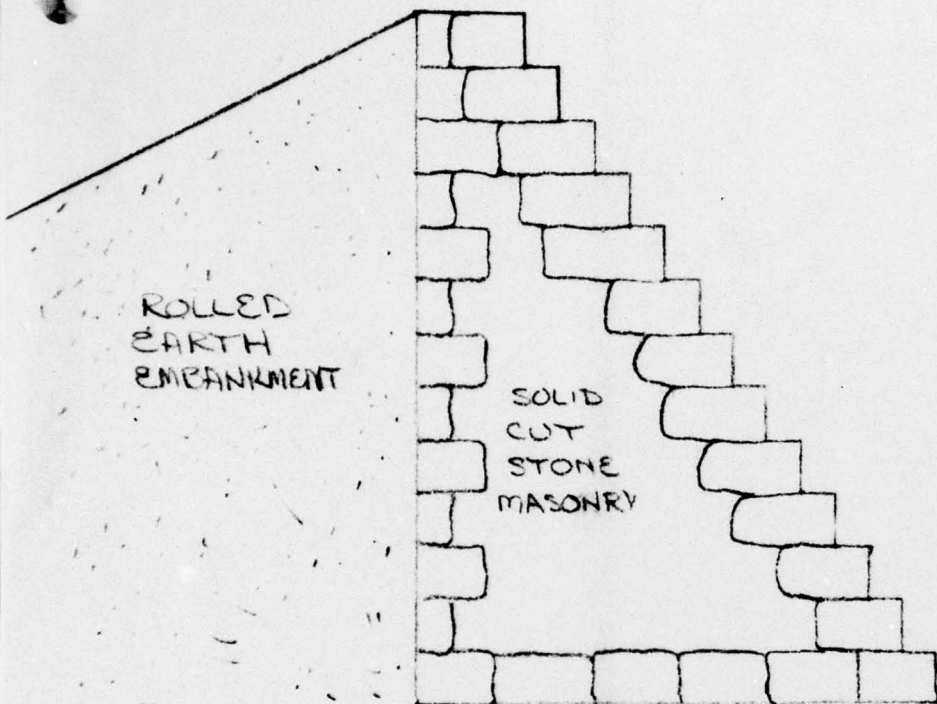 ROLLED
EARTH
EMBANKMENT
SOLID
CUT
STONE
MASONRY